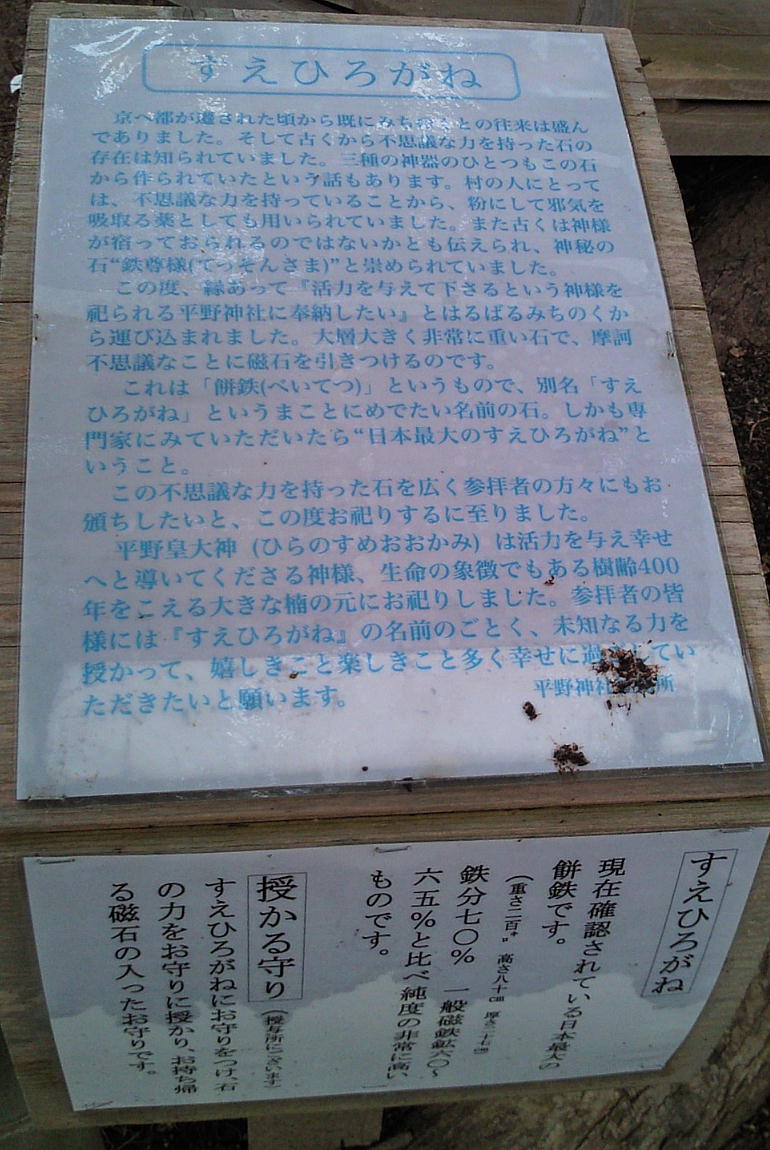 すえひろがね
京へ都が遷された頃から既にみちのくとの往来は盛ん
でありました。そして古くから不思議な力を持った石の
存在は知られていました。三種の神器のひとつもこの石
から作られていたという話もあります。村の人にとって
は、不思議な力を持っていることから、粉にして邪気を
吸取る薬としても用いられていました。また古くは神様
が宿っておられるのではないかとも伝えられ、神秘の
石“鉄尊様(てっそんさま)”と崇められていました。
この度、縁あって『活力を与えて下さるという神様を
祀られる平野神社に奉納したい』とはるばるみちのくか
ら運び込まれました。大層大きく非常に重い石で、摩訶
不思議なことに磁石を引きつけるのです。
これは「餅鉄(べいてつ)」というもので、別名「すえ
ひろがね」というまことにめでたい名前の石。しかも専
門家にみていただいたら“日本最大のすえひろがね”と
いうこと。
この不思議な力を持った石を広く参拝者の方々にもお
頒ちしたいと、この度お祀りするに至りました。
平野皇大神 (ひらのすめおおかみ) は活力を与え幸せ
へと導いてくださる神様、生命の象徴でもある樹齢400
年をこえる大きな楠の元にお祀りしました。参拝者の皆
様には『すえひろがね』の名前のごとく、未知なる力を
授かって、嬉しきこと楽しきこと多く幸せに過ごしてい
ただきたいと願います。
平野神社 所
すえひろがね
現在確認されている日本最大の
餅鉄です。
(重さ二百㌔ 高さ八十㎝ 厚さ二十七㎝)
鉄分七〇% 一般磁鉄鉱六〇~
六五%と比べ純度の非常に高い
ものです。
授かる守り (授与所にございます)
すえひろがねにお守りをつけ、石
の力をお守りに授かり、お持ち帰
る磁石の入ったお守りです。